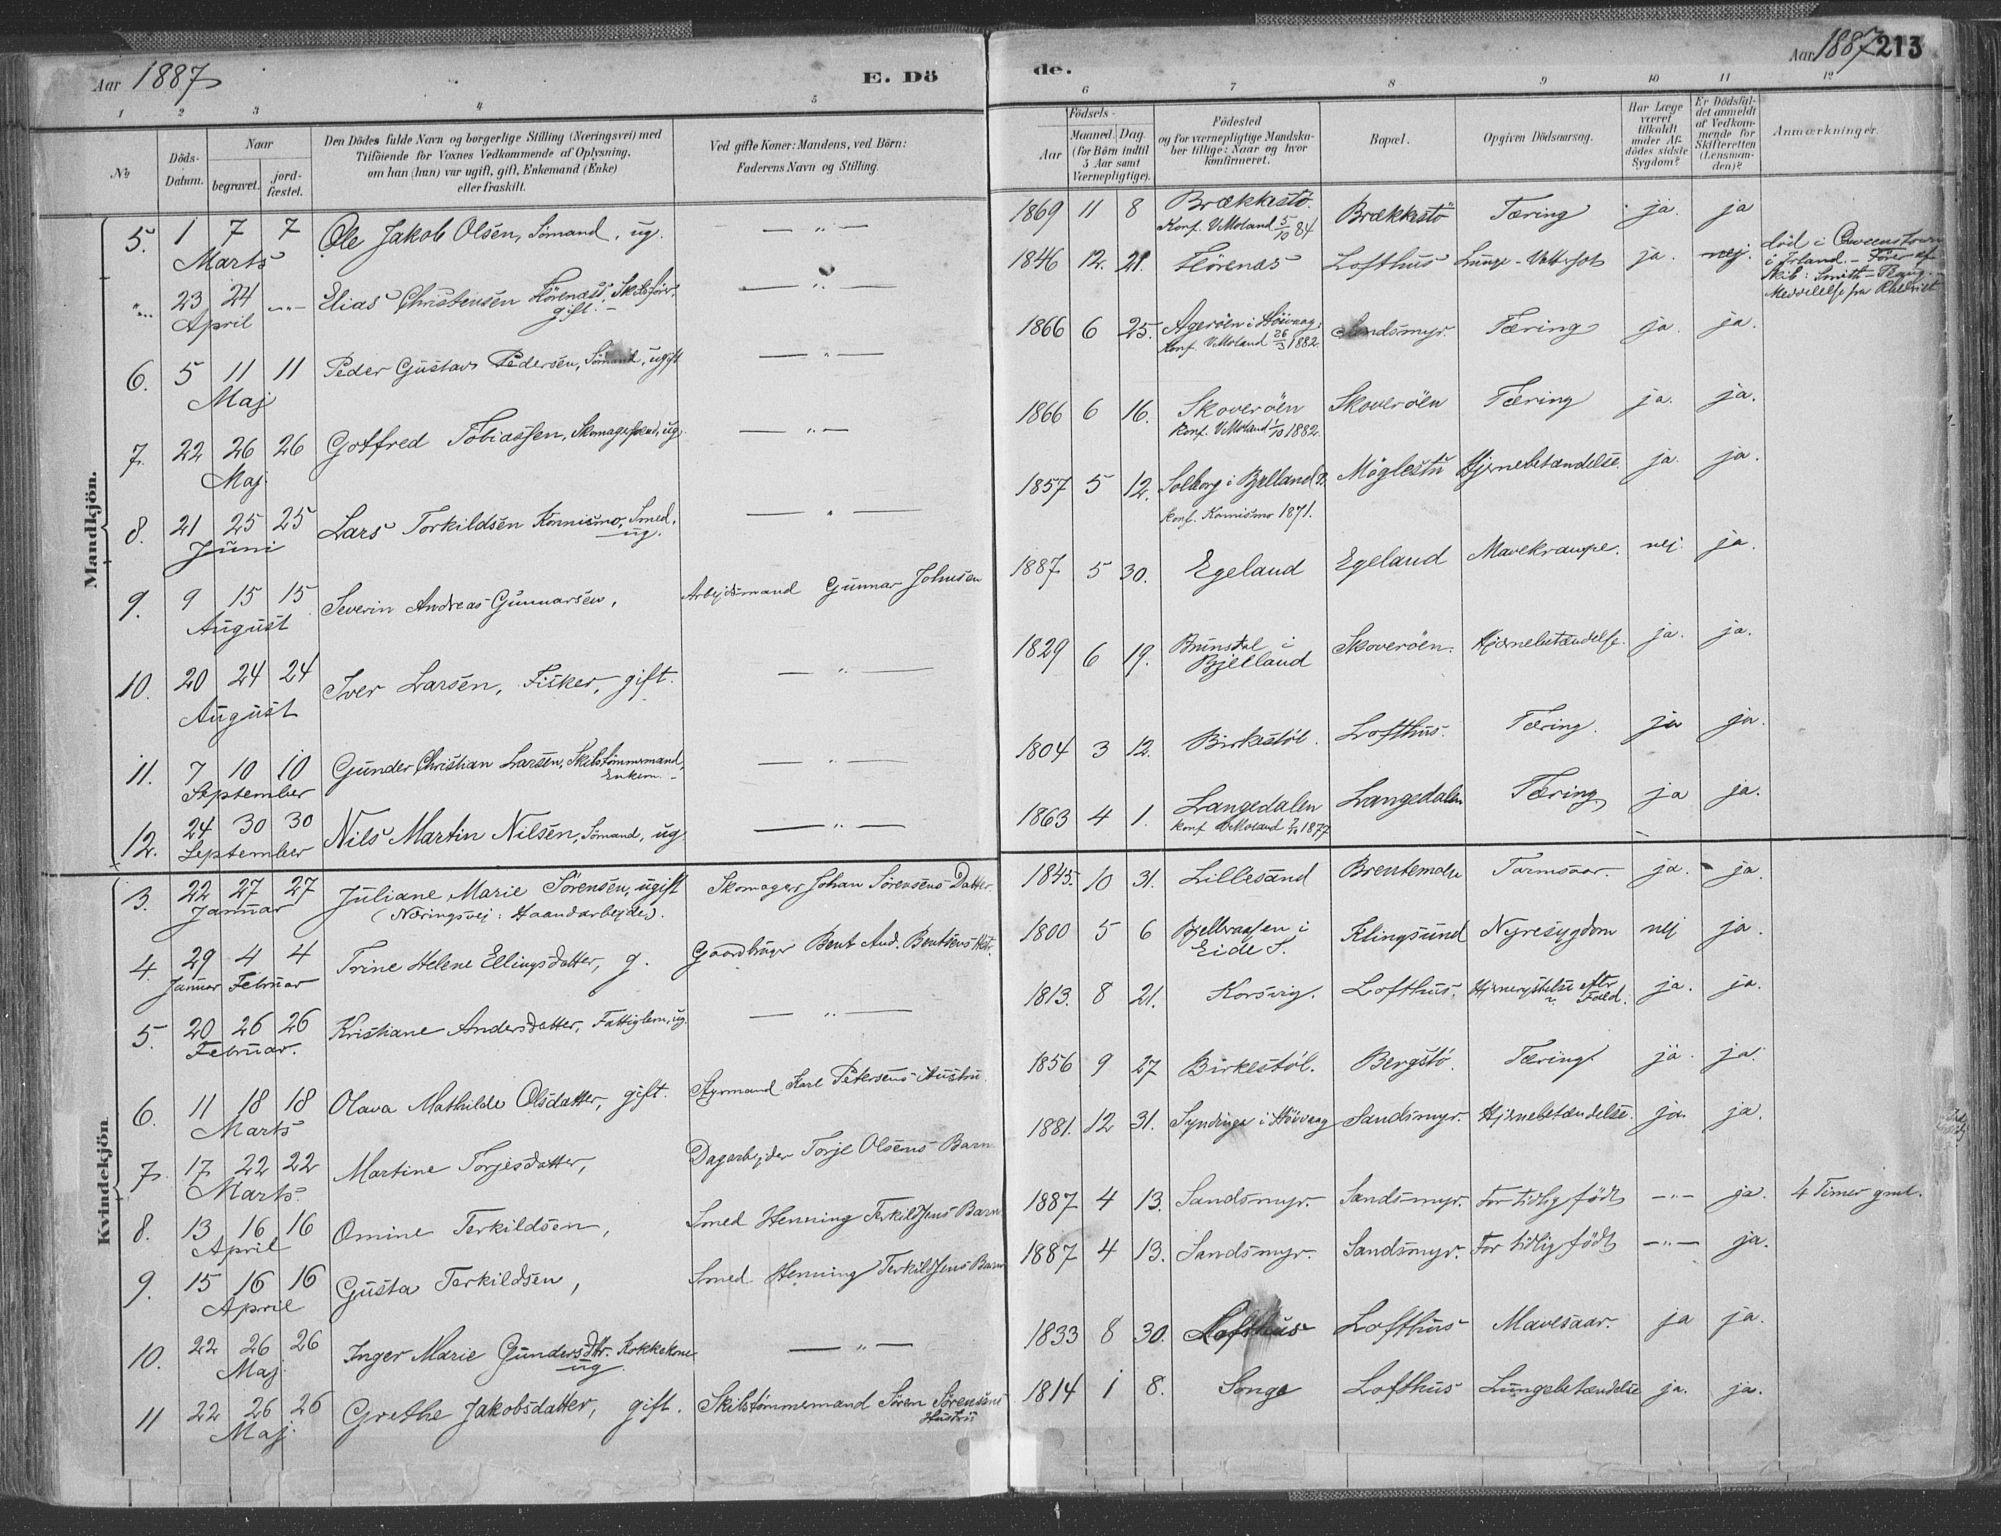 Aar 1887
E. Dö
de.
Aar 1887 213
1 2 3 4 5
6 7 8 9 10 11 12
No
Döds-Datum.
Naar
begravet.
jord-fæstet.
Den Dödes fulde Navn og borgerlige Stilling (Næringsvei) med
Tilföiende for Voxnes Vedkommende af Oplysning,
om han (hun) var ugift, gift, Enkemand (Enke)
eller fraskilt.
Ved gifte Koner: Mandens, ved Börn:
Faderens Navn og Stilling.
Födsels-
Aar
Maaned. Dag.
(for Börn indtil
5 Aar samt
Værnepligtige).
Födested
og for værnepligtige Mandska-
ber tillige: Naar og hvor
konfirmeret.
Bopæl.
Opgiven Dödsaarsag.
Har Læge
været
tilkaldt
under Af-
dödes sidste
Sygdom?
Er Dödsfal-
det anmeldt
af Vedkom-
mende for
Skifteretten
(Lensman-
den)?
Anmærkninger.
Mandkjön.
5. 1 7 7 Marts Ole Jakob Olsen, Sömand, ug. — „ — 1869 11 8 Brækkestö. Konf. V.Moland 5/10 84 Brækkestö Tæring ja. ja
„ 23 24 — „ — April Elias Christensen Hörenæs, Skibsförer, gift. — „ — 1846 12. 21. Hörenæs Lofthus Lunge-Vattersot ja. nej. död i Queenstown i Irland. – Förer af Skib: Smith
6. 5 11 11 Maj Peder Gustav Pedersen, Sömand, ugift — „ — 1866 6 25. Ageröen i Höivaag. Konf. V.Moland 26/3 1882. Sandsmyr. Tæring ja. ja.
7. 22 26 26 Maj Gotfred Tobiassen, ug. — „ — 1866 6 16. Skoveröen Konf. V.Moland 1/10 1882. Skoveröen Tæring ja. ja.
8. 21 25 25 Juni Lars Torkildsen Konnismo, Smed, ug. — „ — 1857 5 12. Solberg i Bjelland Konf. Konnismo 1871. Möglestu Hjernebetændelse. ja. ja.
9. 9 15 15 August Severin Andreas Gunnarsen, Arbejdsmand Gunnar Johnsen 1887 5 30. Egeland Egeland Mavekrampe. nej. ja.
10. 20 24 24 August Iver Larsen, Fisker, gift. — „ — 1829 6 19. Brunsdal i Bjelland Skoveröen. Hjernebetændelse. ja. ja.
11. 7 10 10 September Gunder Christian Larsen, Skibstömmermand, Enkem. — „ — 1804 3 12. Birkestöl. Lofthus. Tæring. ja ja.
12. 24 30 30 September Nils Martin Nilsen, Sömand, ug. — „ — 1863 4 1. Langedalen Konf. V.Moland 1877 Langedalen Tæring ja ja.
Kvindekjön.
3. 22 27 27 Januar Juliane Marie Sörensen, ugift (Næringsvej: Haandarbejde). Skomager Johan Sörensens Datter. 1845. 10 31. Lillesand Brentemoen Tarmsaar. ja. ja.
4. 29 4 4 Januar Februar Trine Helene Ellingsdatter, g. Gaardbruger Bent And. Bentsens Hstr. 1800 5 6 i Eide S. Klingsund Nyresygdom nej ja.
5. 20 26 26 Februar. Kristiane Andersdatter, Fattiglem, ug. — „ — 1813. 8 21. Korsvig. Lofthus. Hjernerystelse efter Fald. ja. ja.
6. 11 18 18 Marts Olava Mathilde Olsdatter, gift. Styrmand Karl Petersens Hustru. 1856 9 27 Birkestöl. Bergstö. Tæring. ja. ja.
7. 17 22 22 Marts. Martine Torjesdatter, Dagarbejder Torje Olsens Barn 1881. 12 31. i Höivaag Sandsmyr. Hjernebetændelse. ja. ja.
8. 13 16 16 April Omine Terkildsen, Smed Henning Terkildsens Barn 1887 4 13. Sandsmyr. Sandsmyr. For tidlig födt — „ — ja. 4 Timer gml.
9. 15 16 16 April Gusta Terkildsen, Smed Henning Terkildsens Barn 1887 4 13. Sandsmyr. Sandsmyr. For tidlig födt — „ — ja.
10. 22 26 26 Maj. Inger Marie Gundersdtr. Kokkekone ug. — „ — 1833 8 30. Lofthus Lofthus Mavesaar. ja ja.
11 22 26 26 Maj. Grethe Jakobsdatter, gift. Skibstömmermand Sören Sörensens Hustru 1814 1 8. Songe Lofthus Lungebetændelse ja. ja.